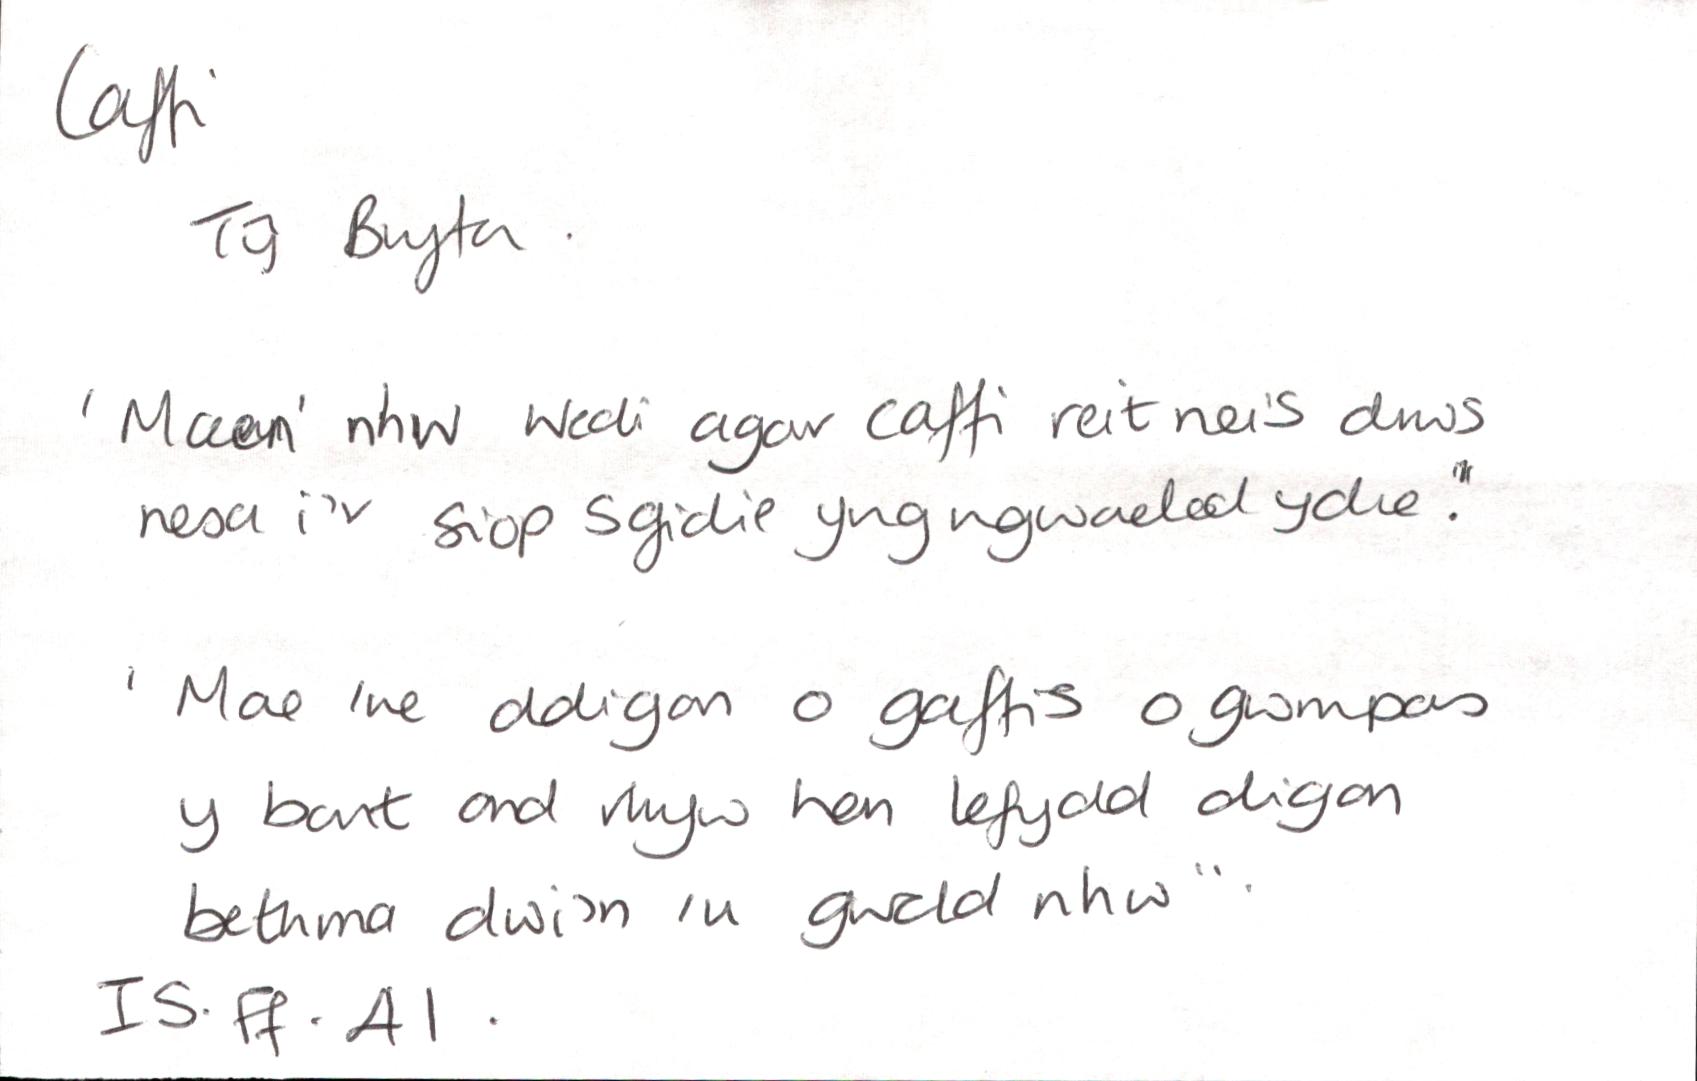 Caffi
Tŷ Bwyta.
'Maen' nhw wedi agor caffi reit neis drws
nesa i'r siop sgidie yng ngwaelod y dre."
'Mae 'ne ddigon o gaffis o gwmpas
y bont ond rhyw hen lefydd digon
bethma dwi'n 'u gweld nhw".
IS. Ff. Al.